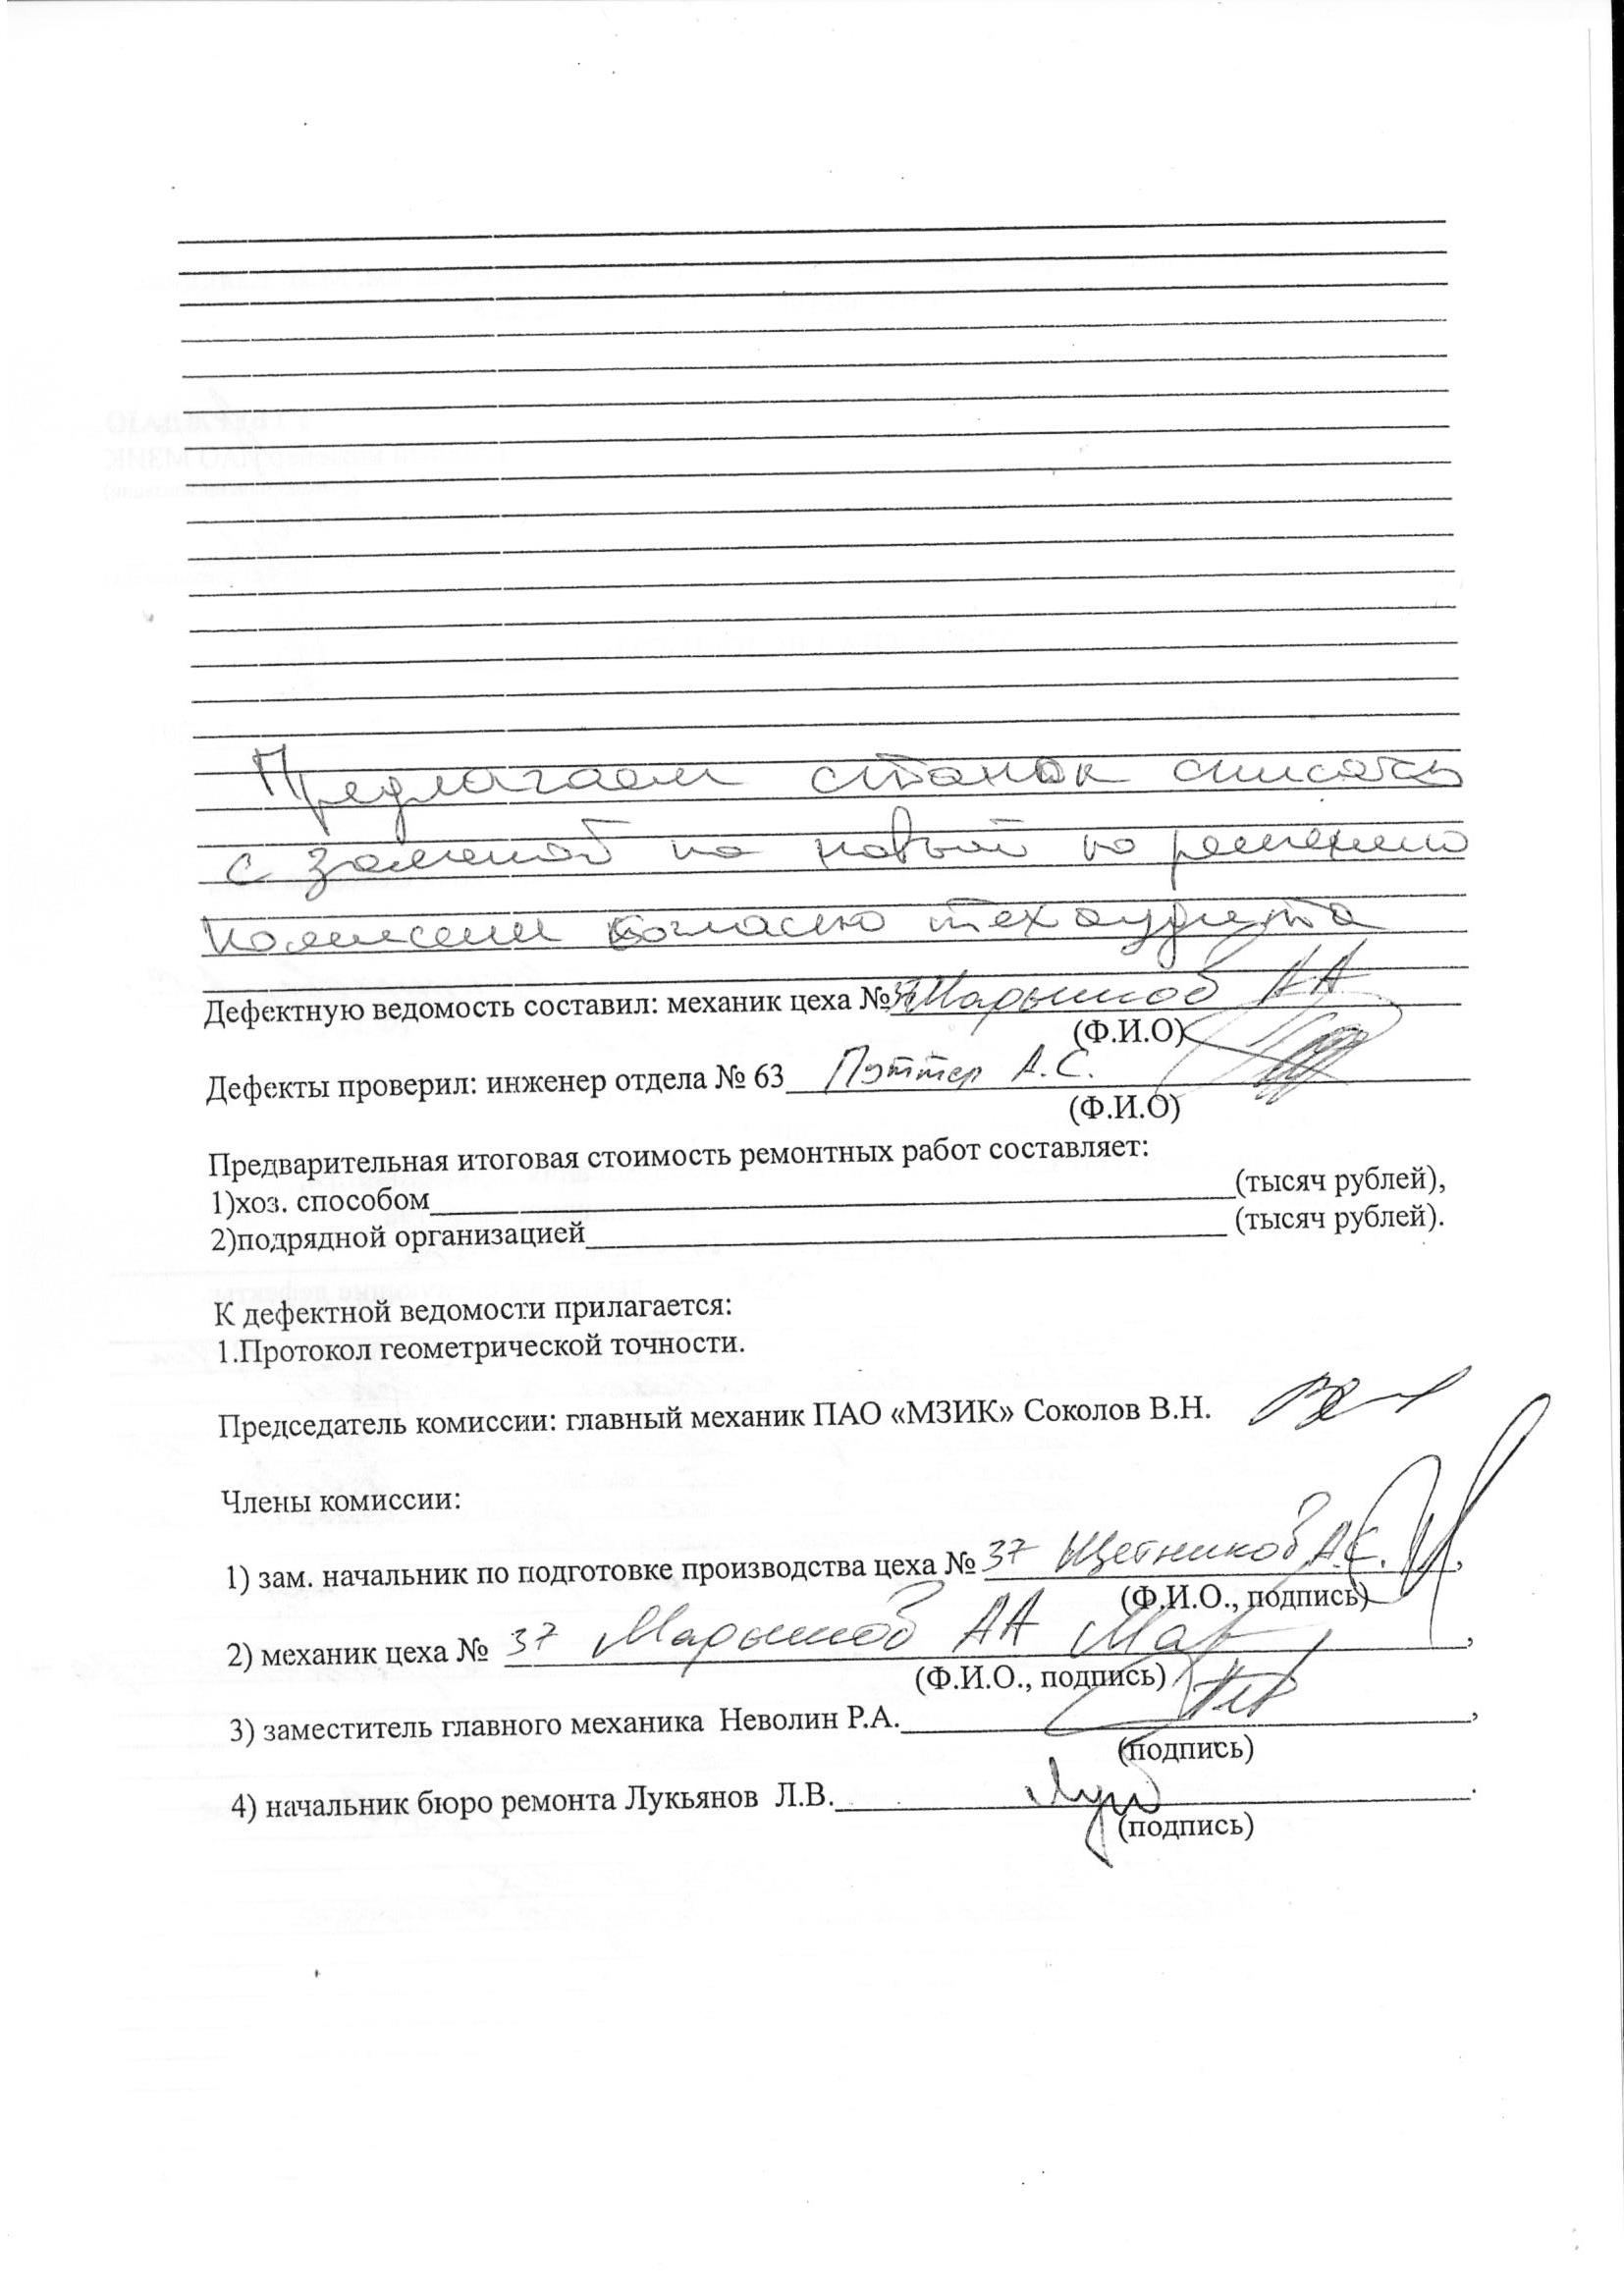 Предлагаем станок списать
с заменой на новый по решению
комиссии согласно техаудита
Дефектную ведомость составил: механик цеха №37 Марышов АА
(Ф.И.О)
Дефекты проверил: инженер отдела № 63 Пэттер А.С.
(Ф.И.О)
Предварительная итоговая стоимость ремонтных работ составляет:
1)хоз. способом (тысяч рублей),
2)подрядной организацией (тысяч рублей).
К дефектной ведомости прилагается:
1.Протокол геометрической точности.
Председатель комиссии: главный механик ПАО «МЗИК» Соколов В.Н.
Члены комиссии:
1) зам. начальник по подготовке производства цеха № 37 Щетников А.Е.,
(Ф.И.О., подпись)
2) механик цеха № 37 Марышов АА ,
(Ф.И.О., подпись)
3) заместитель главного механика Неволин Р.А. ,
(подпись)
4) начальник бюро ремонта Лукьянов Л.В. .
(подпись)